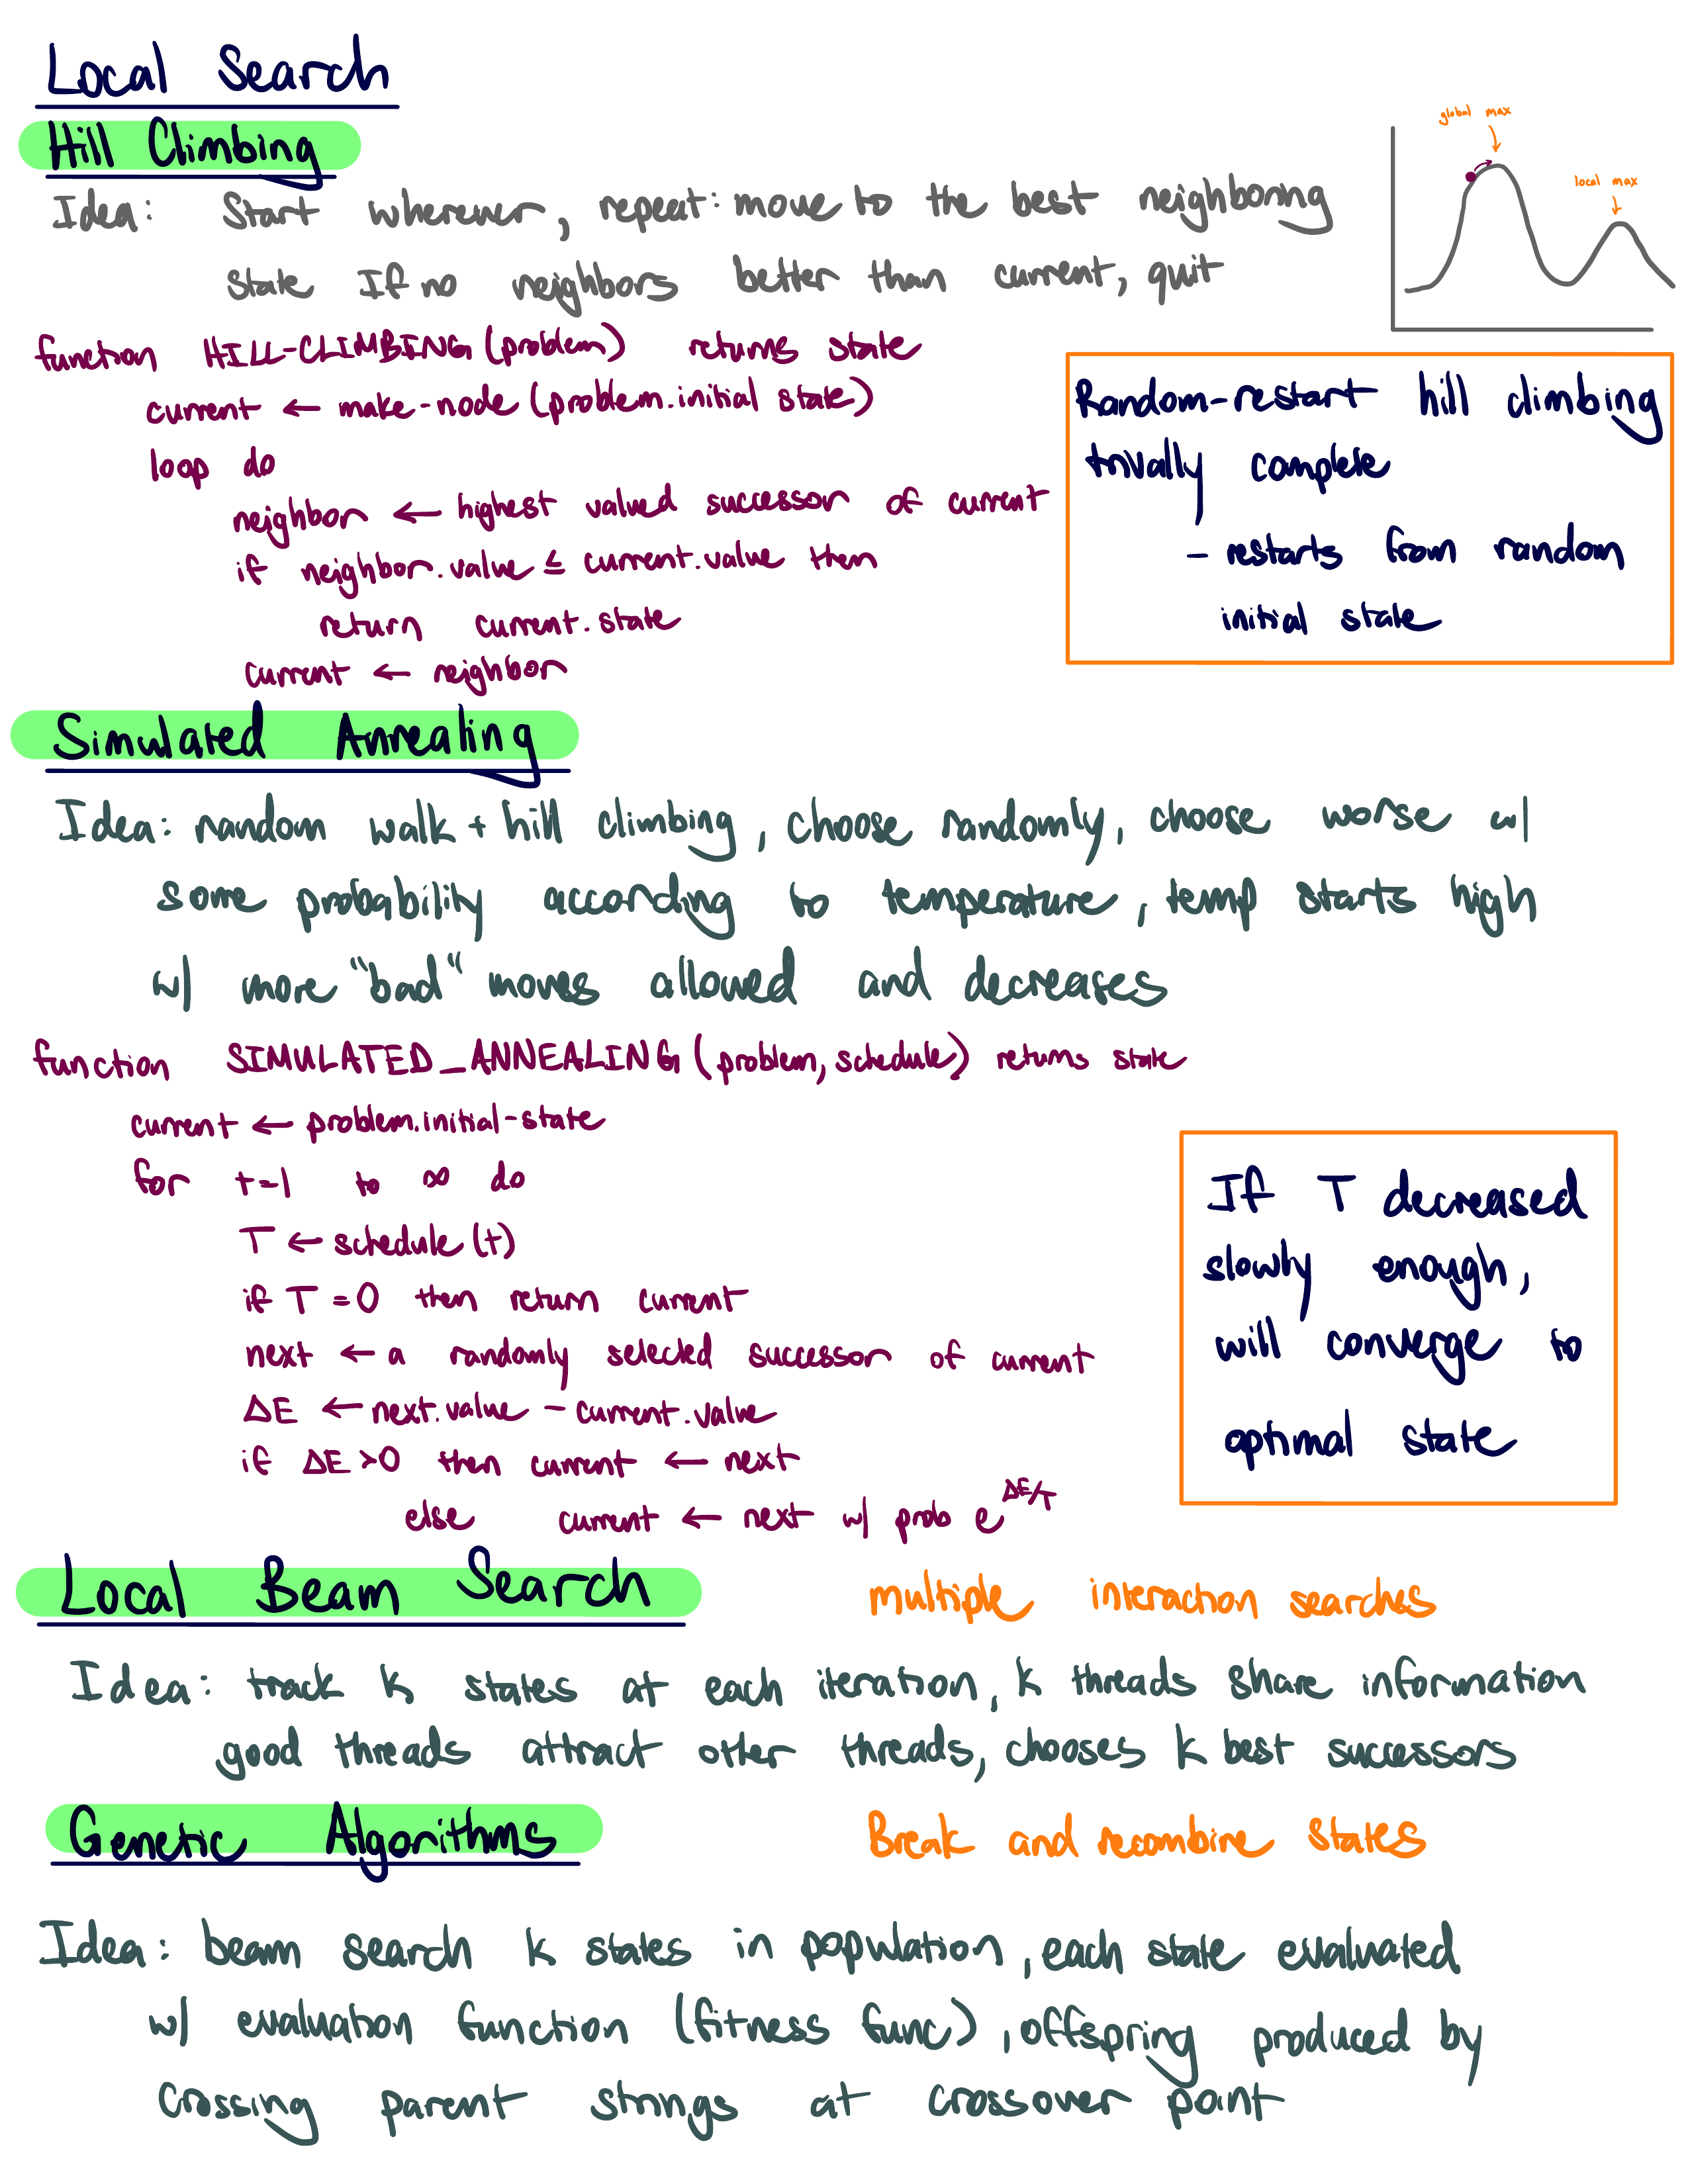 Local Search
Hill Climbing
global max
local max
Idea: Start wherever, repeat: move to the best neighboring
state If no neighbors better than current, quit
function HILL-CLIMBING (problem) returns state
current ← make-node (problem.initial state)
loop do
neighbor ← highest valued successor of current
if neighbor.value ≤ current.value then
return current.state
current ← neighbor
Random-restart hill climbing
trivally complete
- restarts from random
initial state
Simulated Annealing
Idea: random walk + hill climbing, choose randomly, choose worse w/
some probability according to temperature, temp starts high
w/ more "bad" moves allowed and decreases
function SIMULATED_ANNEALING (problem, schedule) returns state
current ← problem.initial-state
for t=1 to ∞ do
T ← schedule (t)
if T = 0 then return current
next ← a randomly selected successor of current
ΔE ← next.value - current.value
if ΔE > 0 then current ← next
else current ← next w/ prob e^ΔE/T
If T decreased
slowly enough,
will converge to
optimal state
Local Beam Search
multiple interaction searches
Idea: track k states at each iteration, k threads share information
good threads attract other threads, chooses k best successors
Genetic Algorithms
Break and recombine states
Idea: beam search k states in population, each state evaluated
w/ evaluation function (fitness func), offspring produced by
crossing parent strings at crossover point